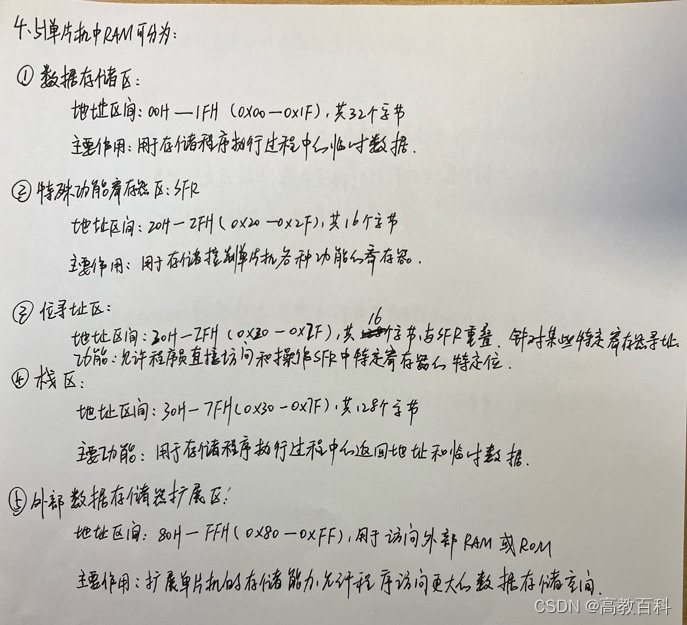 4、51单片机中RAM可分为:
① 数据存储区:
地址区间:00H—1FH (0x00—0x1F),共32个字节
主要作用:用于存储程序执行过程中的临时数据.
② 特殊功能寄存器区:SFR
地址区间:20H—2FH (0x20—0x2F),共16个字节
主要作用:用于存储控制单片机各种功能的寄存器.
③ 位寻址区:
地址区间:20H—2FH (0x20—0x2F),共16个字节,与SFR重叠.针对某些特定寄存器寻址
功能:允许程序员直接访问和操作SFR中特定寄存器的特定位.
④ 栈区:
地址区间:30H—7FH(0x30—0x7F),共128个字节
主要功能:用于存储程序执行过程中的返回地址和临时数据.
⑤ 外部数据存储器扩展区:
地址区间:80H—FFH(0x80—0xFF),用于访问外部RAM或ROM
主要作用:扩展单片机的存储能力,允许程序访问更大的数据存储空间.
CSDN @高教百科